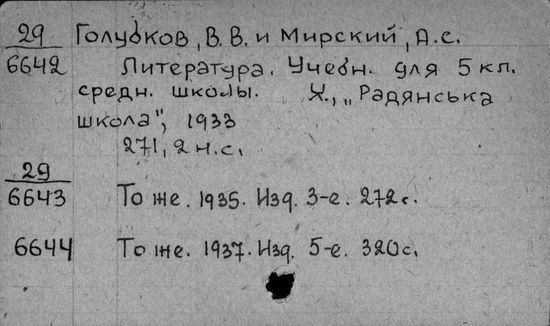 29 Голубков, В. В. и Мирский, Д. С.
6642 Литература. Учебн. для 5 кл.
средн. школы. Х., „Радянська
школа", 1933
271, 2 н. с.
29
6643 То же. 1935. Изд. 3-е. 272 с.
6644 То же. 1937. Изд. 5-е. 320 с.